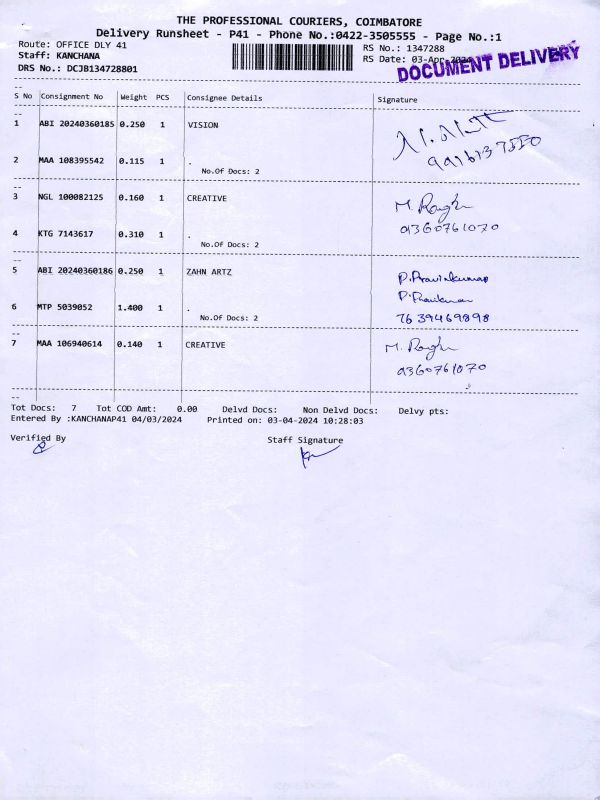 THE PROFESSIONAL COURIERS, COIMBATORE
Delivery Runsheet - P41 - Phone No.:0422-3505555 - Page No.:1
Route: OFFICE DLY 41 RS No.: 1347288
Staff: KANCHANA RS Date: 03-Apr-2024
DRS No.: DCJB134728801 DOCUMENT DELIVERY
--
S No Consignment No Weight PCS Consignee Details Signature
--
1 ABI 20240360185 0.250 1 VISION
2 MAA 108395542 0.115 1 .
No.Of Docs: 2
--
3 NGL 100082125 0.160 1 CREATIVE M. Raghu
4 KTG 7143617 0.310 1 . 9360761070
No.Of Docs: 2
--
5 ABI 20240360186 0.250 1 ZAHN ARTZ P.Pravinkumar
6 MTP 5039052 1.400 1 .
No.Of Docs: 2 7639469898
--
7 MAA 106940614 0.140 1 CREATIVE M. Raghu
9360761070
--
Tot Docs: 7 Tot COD Amt: 0.00 Delvd Docs: Non Delvd Docs: Delvy pts:
Entered By :KANCHANAP41 04/03/2024 Printed on: 03-04-2024 10:28:03
Verified By Staff Signature